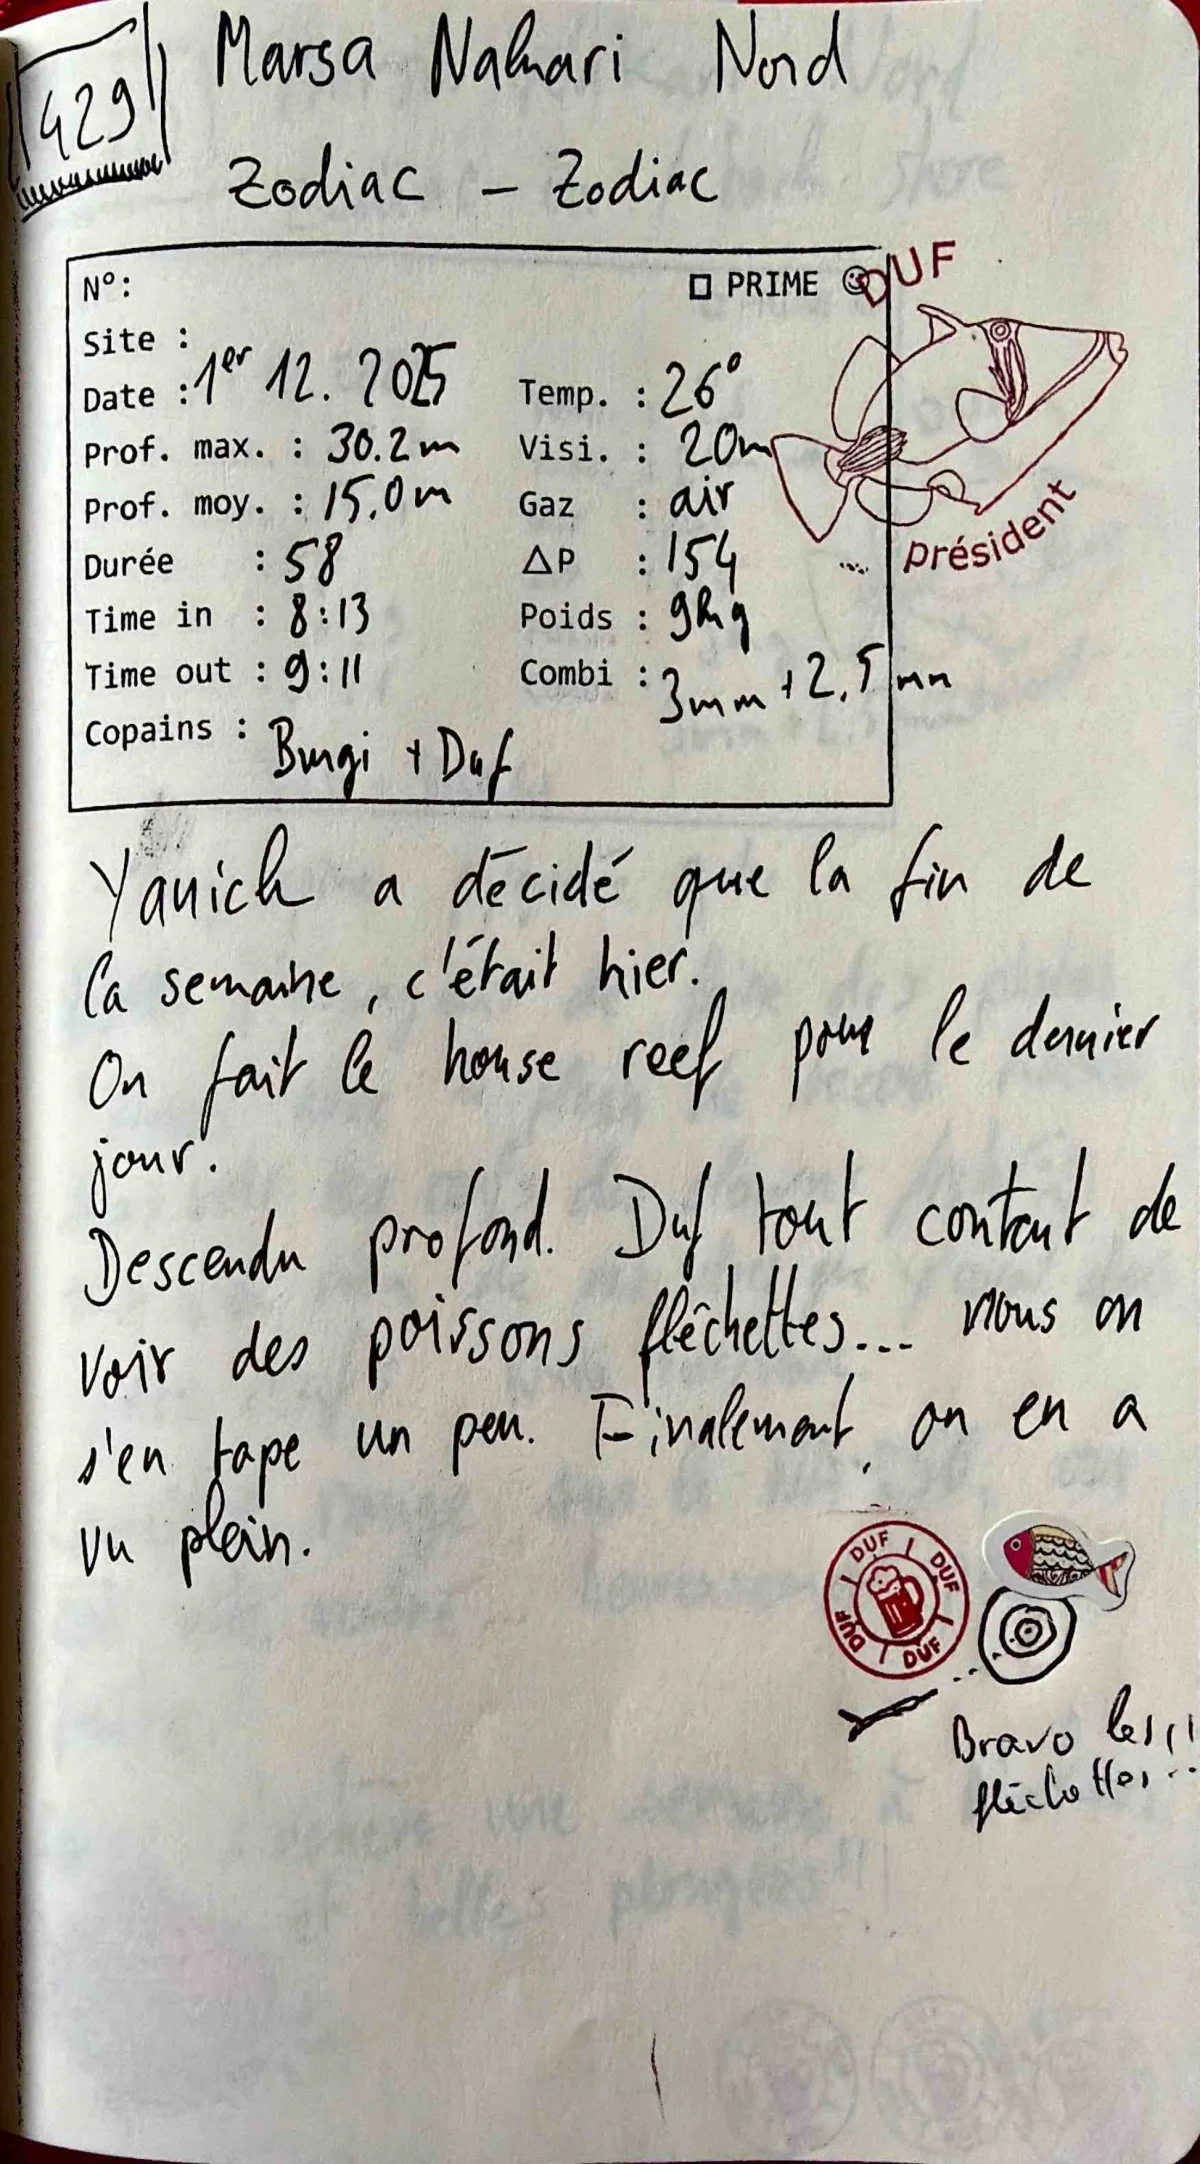 429
Marsa Nakari Nord
Zodiac - Zodiac
N°:
□ PRIME ☺
Site :
Date : 1er 12. 2025
Temp. : 26°
Prof. max. : 30.2m
Visi. : 20m
Prof. moy. : 15.0m
Gaz : air
Durée : 58
ΔP : 154
Time in : 8:13
Poids : 9kg
Time out : 9:11
Combi : 3mm + 2,5mm
Copains : Burgi + Duf
DUF
président
Yanick a décidé que la fin de
la semaine, c'était hier.
On fait le house reef pour le dernier
jour.
Descendu profond. Duf tout content de
voir des poissons fléchettes... nous on
s'en tape un peu. Finalement, on en a
vu plein.
DUF DUF DUF DUF
Bravo les
fléchettes...